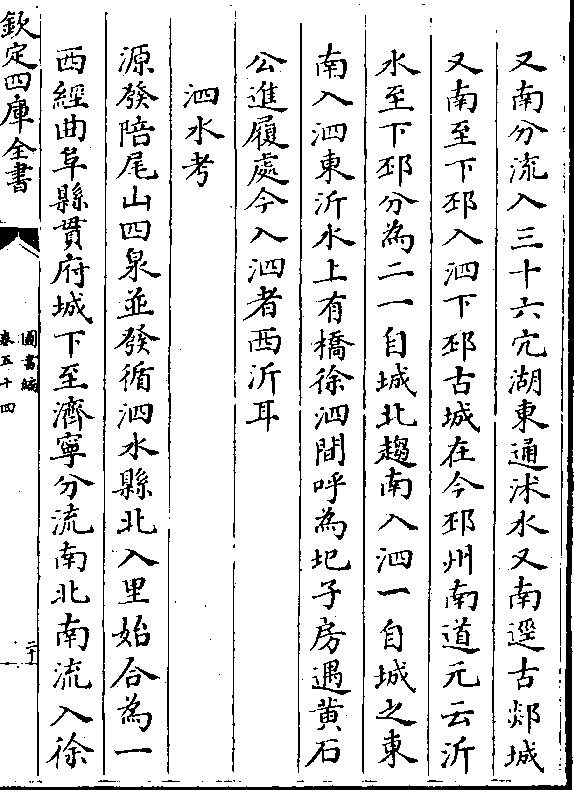 又南分流入三十六宂湖東通沭水又南逕古郯城
又南至下邳入泗下邳古城在今邳州南道元云沂
水至下邳分為二一自城北趨南入泗一自城之東
南入泗東沂水上有橋徐泗間呼為圯子房遇黄石
公進履處今入泗者西沂耳
泗水考
源發陪尾山四泉並發循泗水縣北入里始合為一
西經曲阜縣貫府城下至濟寧分流南北南流入徐
欽定四庫全書
圖書編
卷五十四
二十